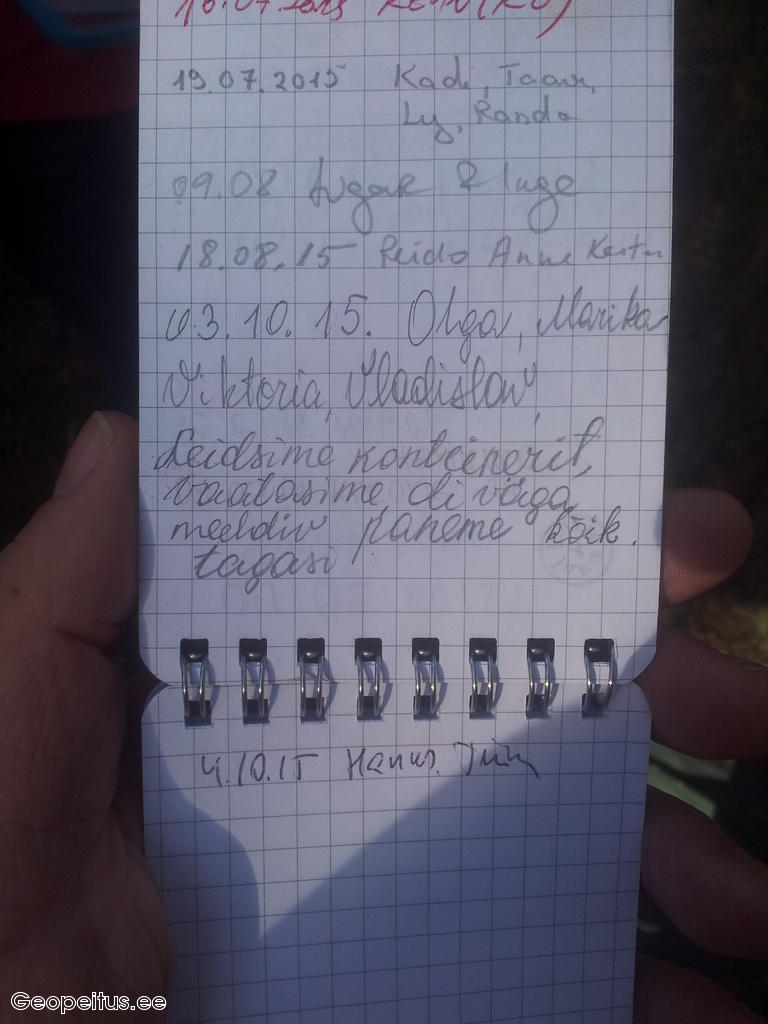 19.07.2015 Kadi, Taavi,
Ly, Rando
09.08
18.08.15 Reido Anne Kertu
03.10.15. Olga, Marika
Viktoria, Vladislav,
Leidsime konteinerit,
vaatasime, oli väga
meeldiv paneme kõik.
tagasi
4.10.15
Geopeitus.ee